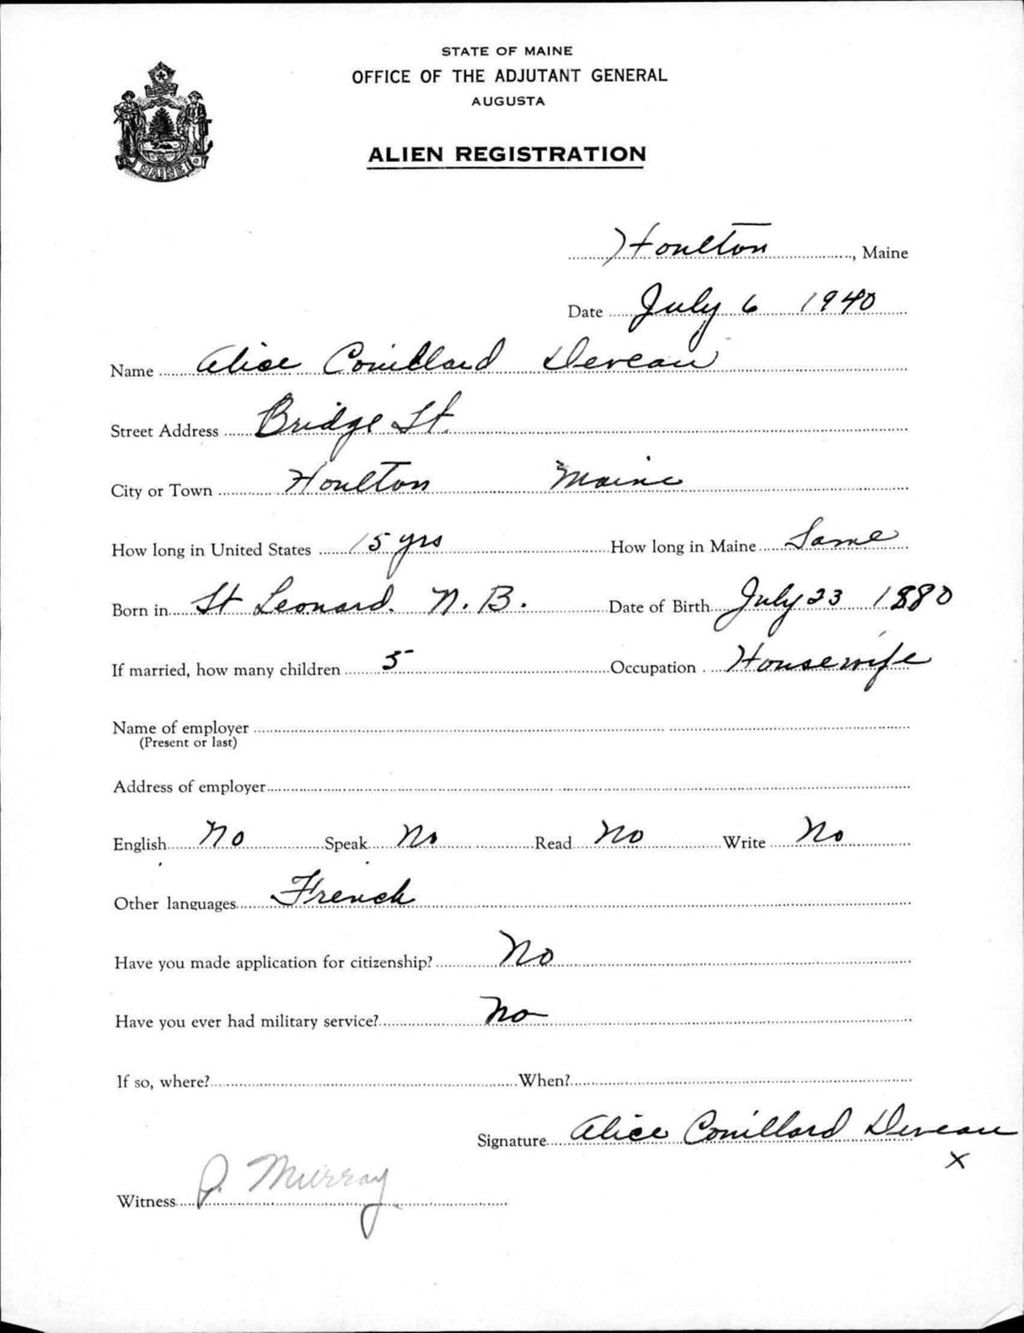 STATE OF MAINE
OFFICE OF THE ADJUTANT GENERAL
AUGUSTA
MAINE
ALIEN REGISTRATION
Houlton, Maine
Date July 6 1940
Name Alice Couillard Deveau
Street Address Bridge St.
City or Town Houlton Maine
How long in United States 15 yrs How long in Maine Same
Born in St Leonard. N.B. Date of Birth July 23 1880
If married, how many children 5 Occupation Housewife
Name of employer
(Present or last)
Address of employer
English No Speak No Read No Write No
Other languages French
Have you made application for citizenship? No
Have you ever had military service? No
If so, where? When?
Signature Alice Couillard Deveau
X
Witness J. Murray